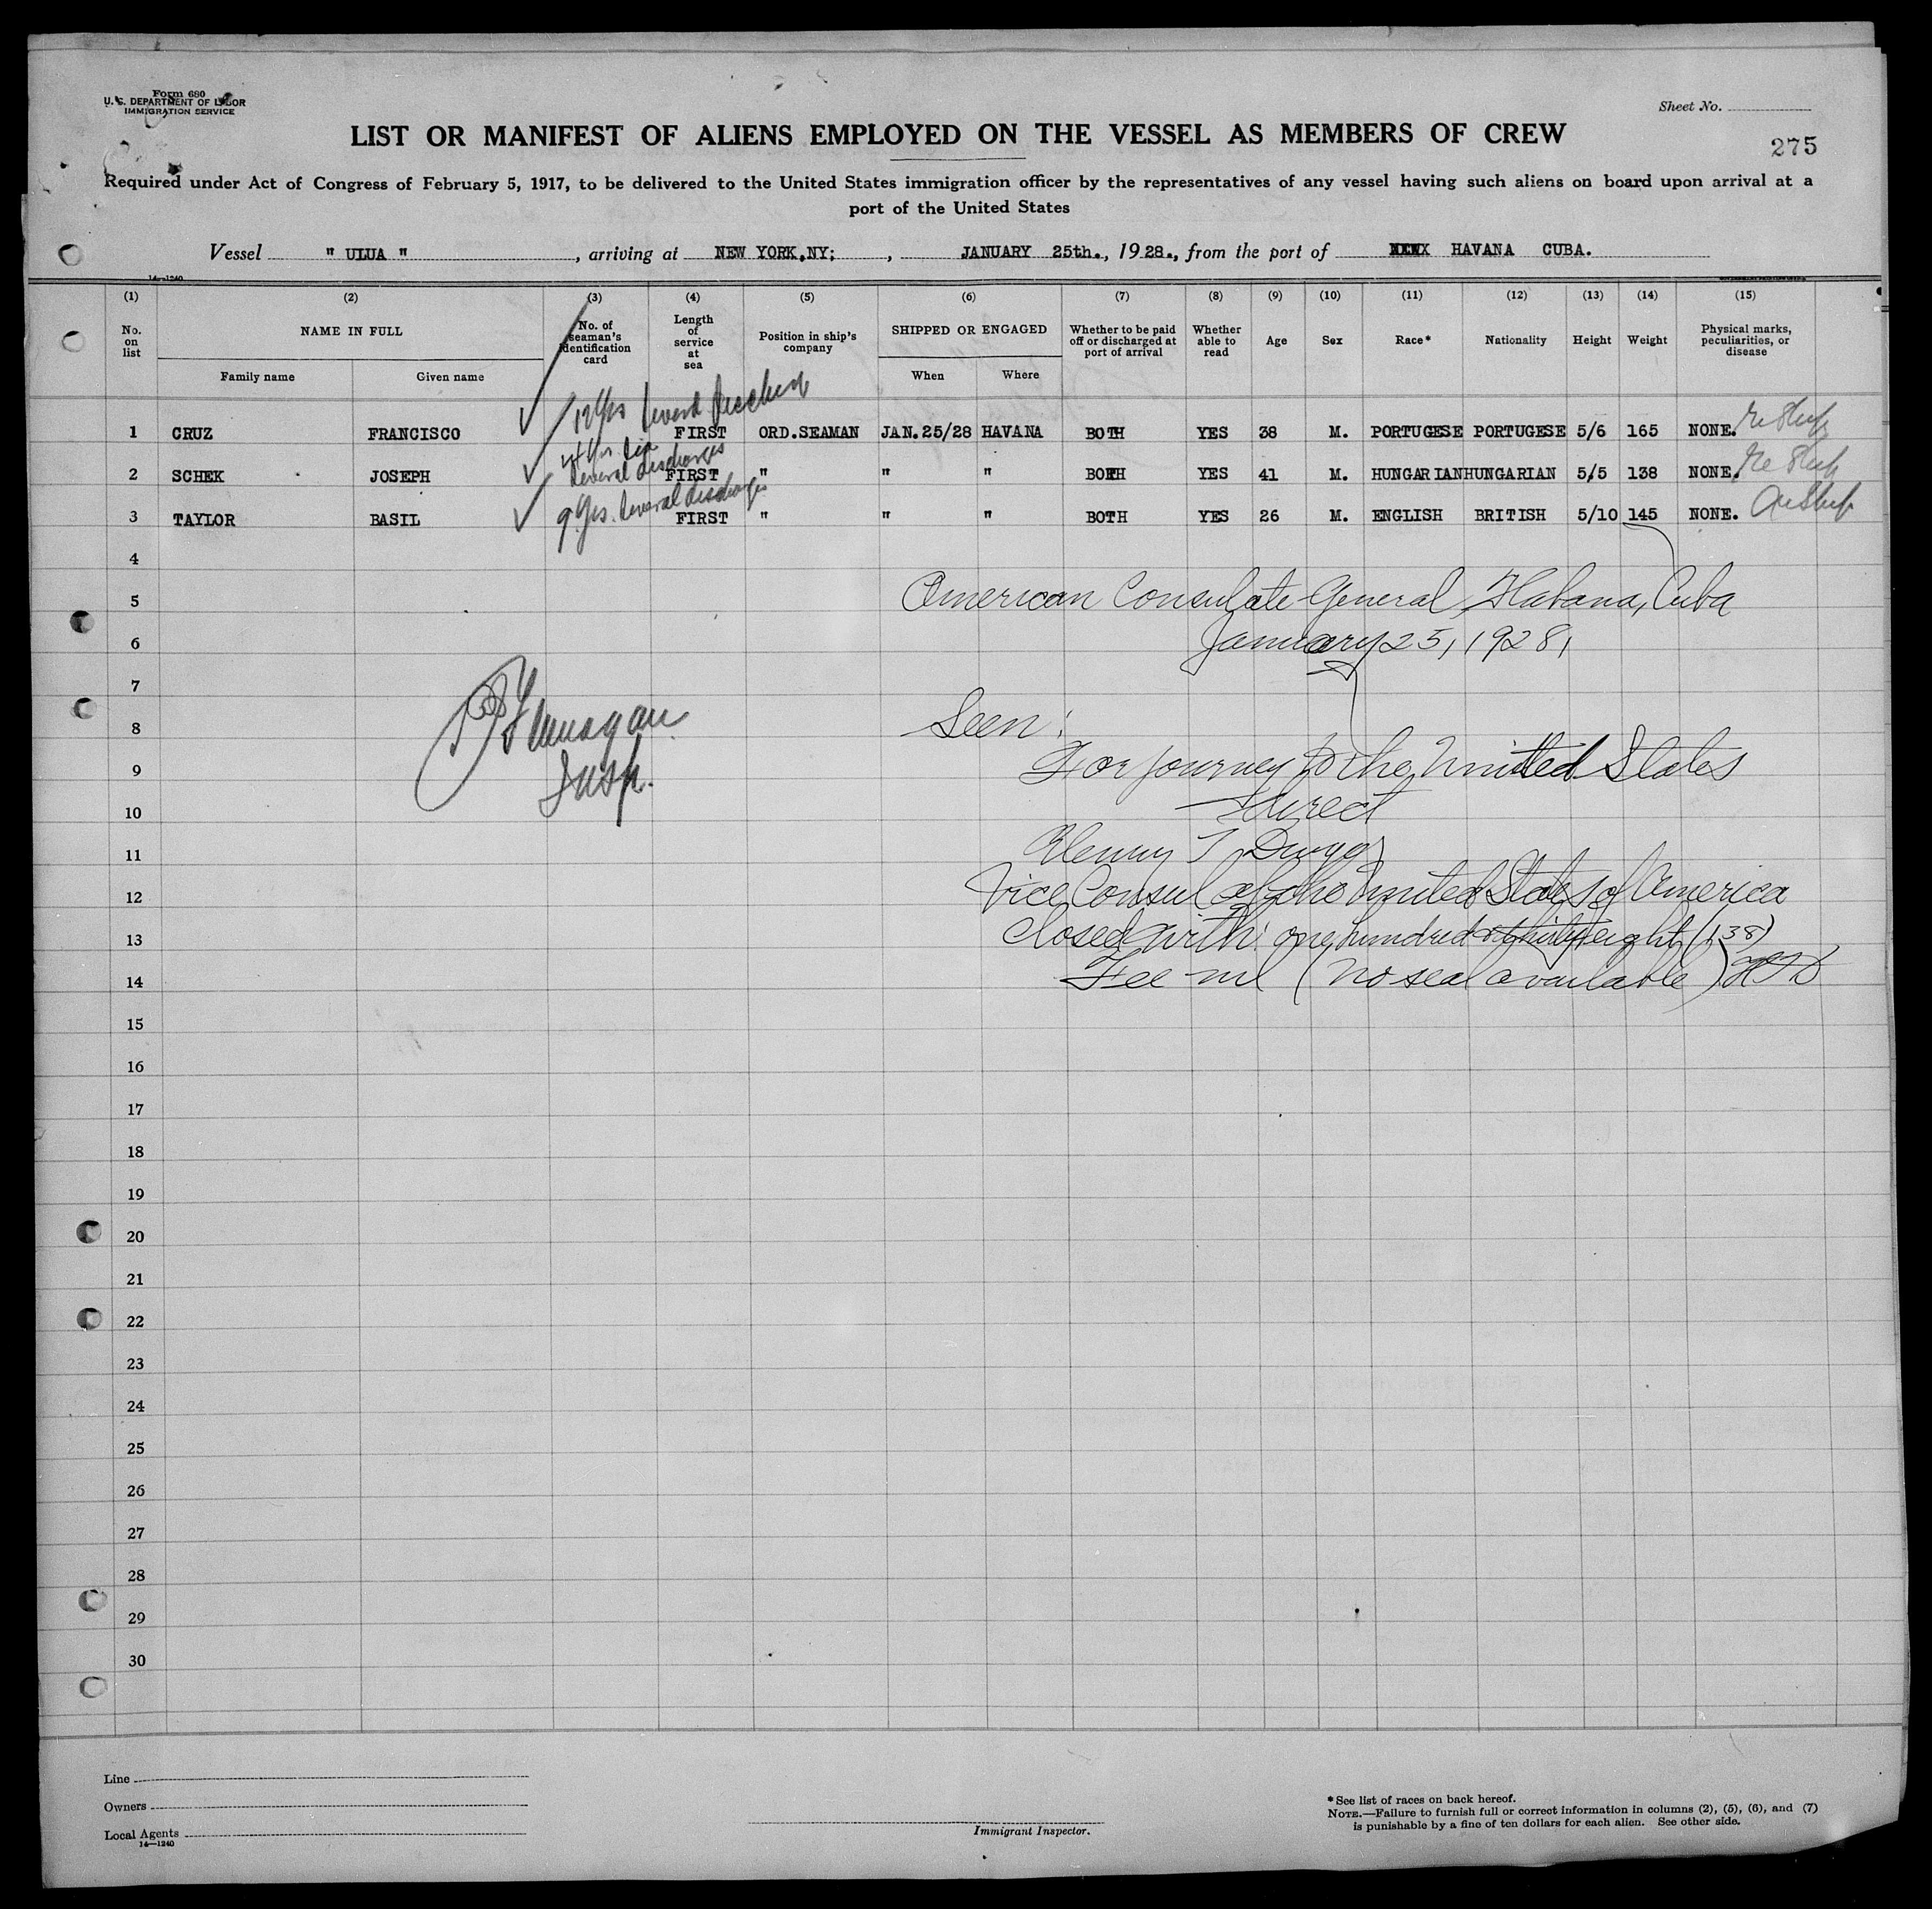 Form 680
U. S. DEPARTMENT OF LABOR
IMMIGRATION SERVICE
Sheet No.
LIST OR MANIFEST OF ALIENS EMPLOYED ON THE VESSEL AS MEMBERS OF CREW
275
Required under Act of Congress of February 5, 1917, to be delivered to the United States immigration officer by the representatives of any vessel having such aliens on board upon arrival at a
port of the United States
Vessel " ULUA " , arriving at NEW YORK,NY; , JANUARY 25th., 1928., from the port of HAVANA CUBA.
14—1240
(1) (2) (3) (4) (5) (6) (7) (8) (9) (10) (11) (12) (13) (14) (15)
No. on list
NAME IN FULL
Family name
Given name
No. of seaman's identification card
Length of service at sea
Position in ship's company
SHIPPED OR ENGAGED
When
Where
Whether to be paid off or discharged at port of arrival
Whether able to read
Age
Sex
Race*
Nationality
Height
Weight
Physical marks, peculiarities, or disease
12 Yrs
1 CRUZ FRANCISCO FIRST ORD.SEAMAN JAN.25/28 HAVANA BOTH YES 38 M. PORTUGESE PORTUGESE 5/6 165 NONE.
several discharges
2 SCHEK JOSEPH FIRST " " " BOTH YES 41 M. HUNGARIAN HUNGARIAN 5/5 138 NONE.
9 Yrs. several discharges
3 TAYLOR BASIL FIRST " " " BOTH YES 26 M. ENGLISH BRITISH 5/10 145 NONE.
4
5 American Consulate General, Habana, Cuba
6 January 25, 1928,
7
8 Flanagan Seen:
9 Insp. For journey to the United States
10 direct
11 Henry T Dwyer
12 Vice Consul of the United States of America
13 Closed with: one hundred & thirty eight (138)
14 Fee nil (no seal available) HTD
15
16
17
18
19
20
21
22
23
24
25
26
27
28
29
30
Line
Owners
Local Agents
14—1240
Immigrant Inspector.
*See list of races on back hereof.
NOTE.—Failure to furnish full or correct information in columns (2), (5), (6), and (7)
is punishable by a fine of ten dollars for each alien. See other side.